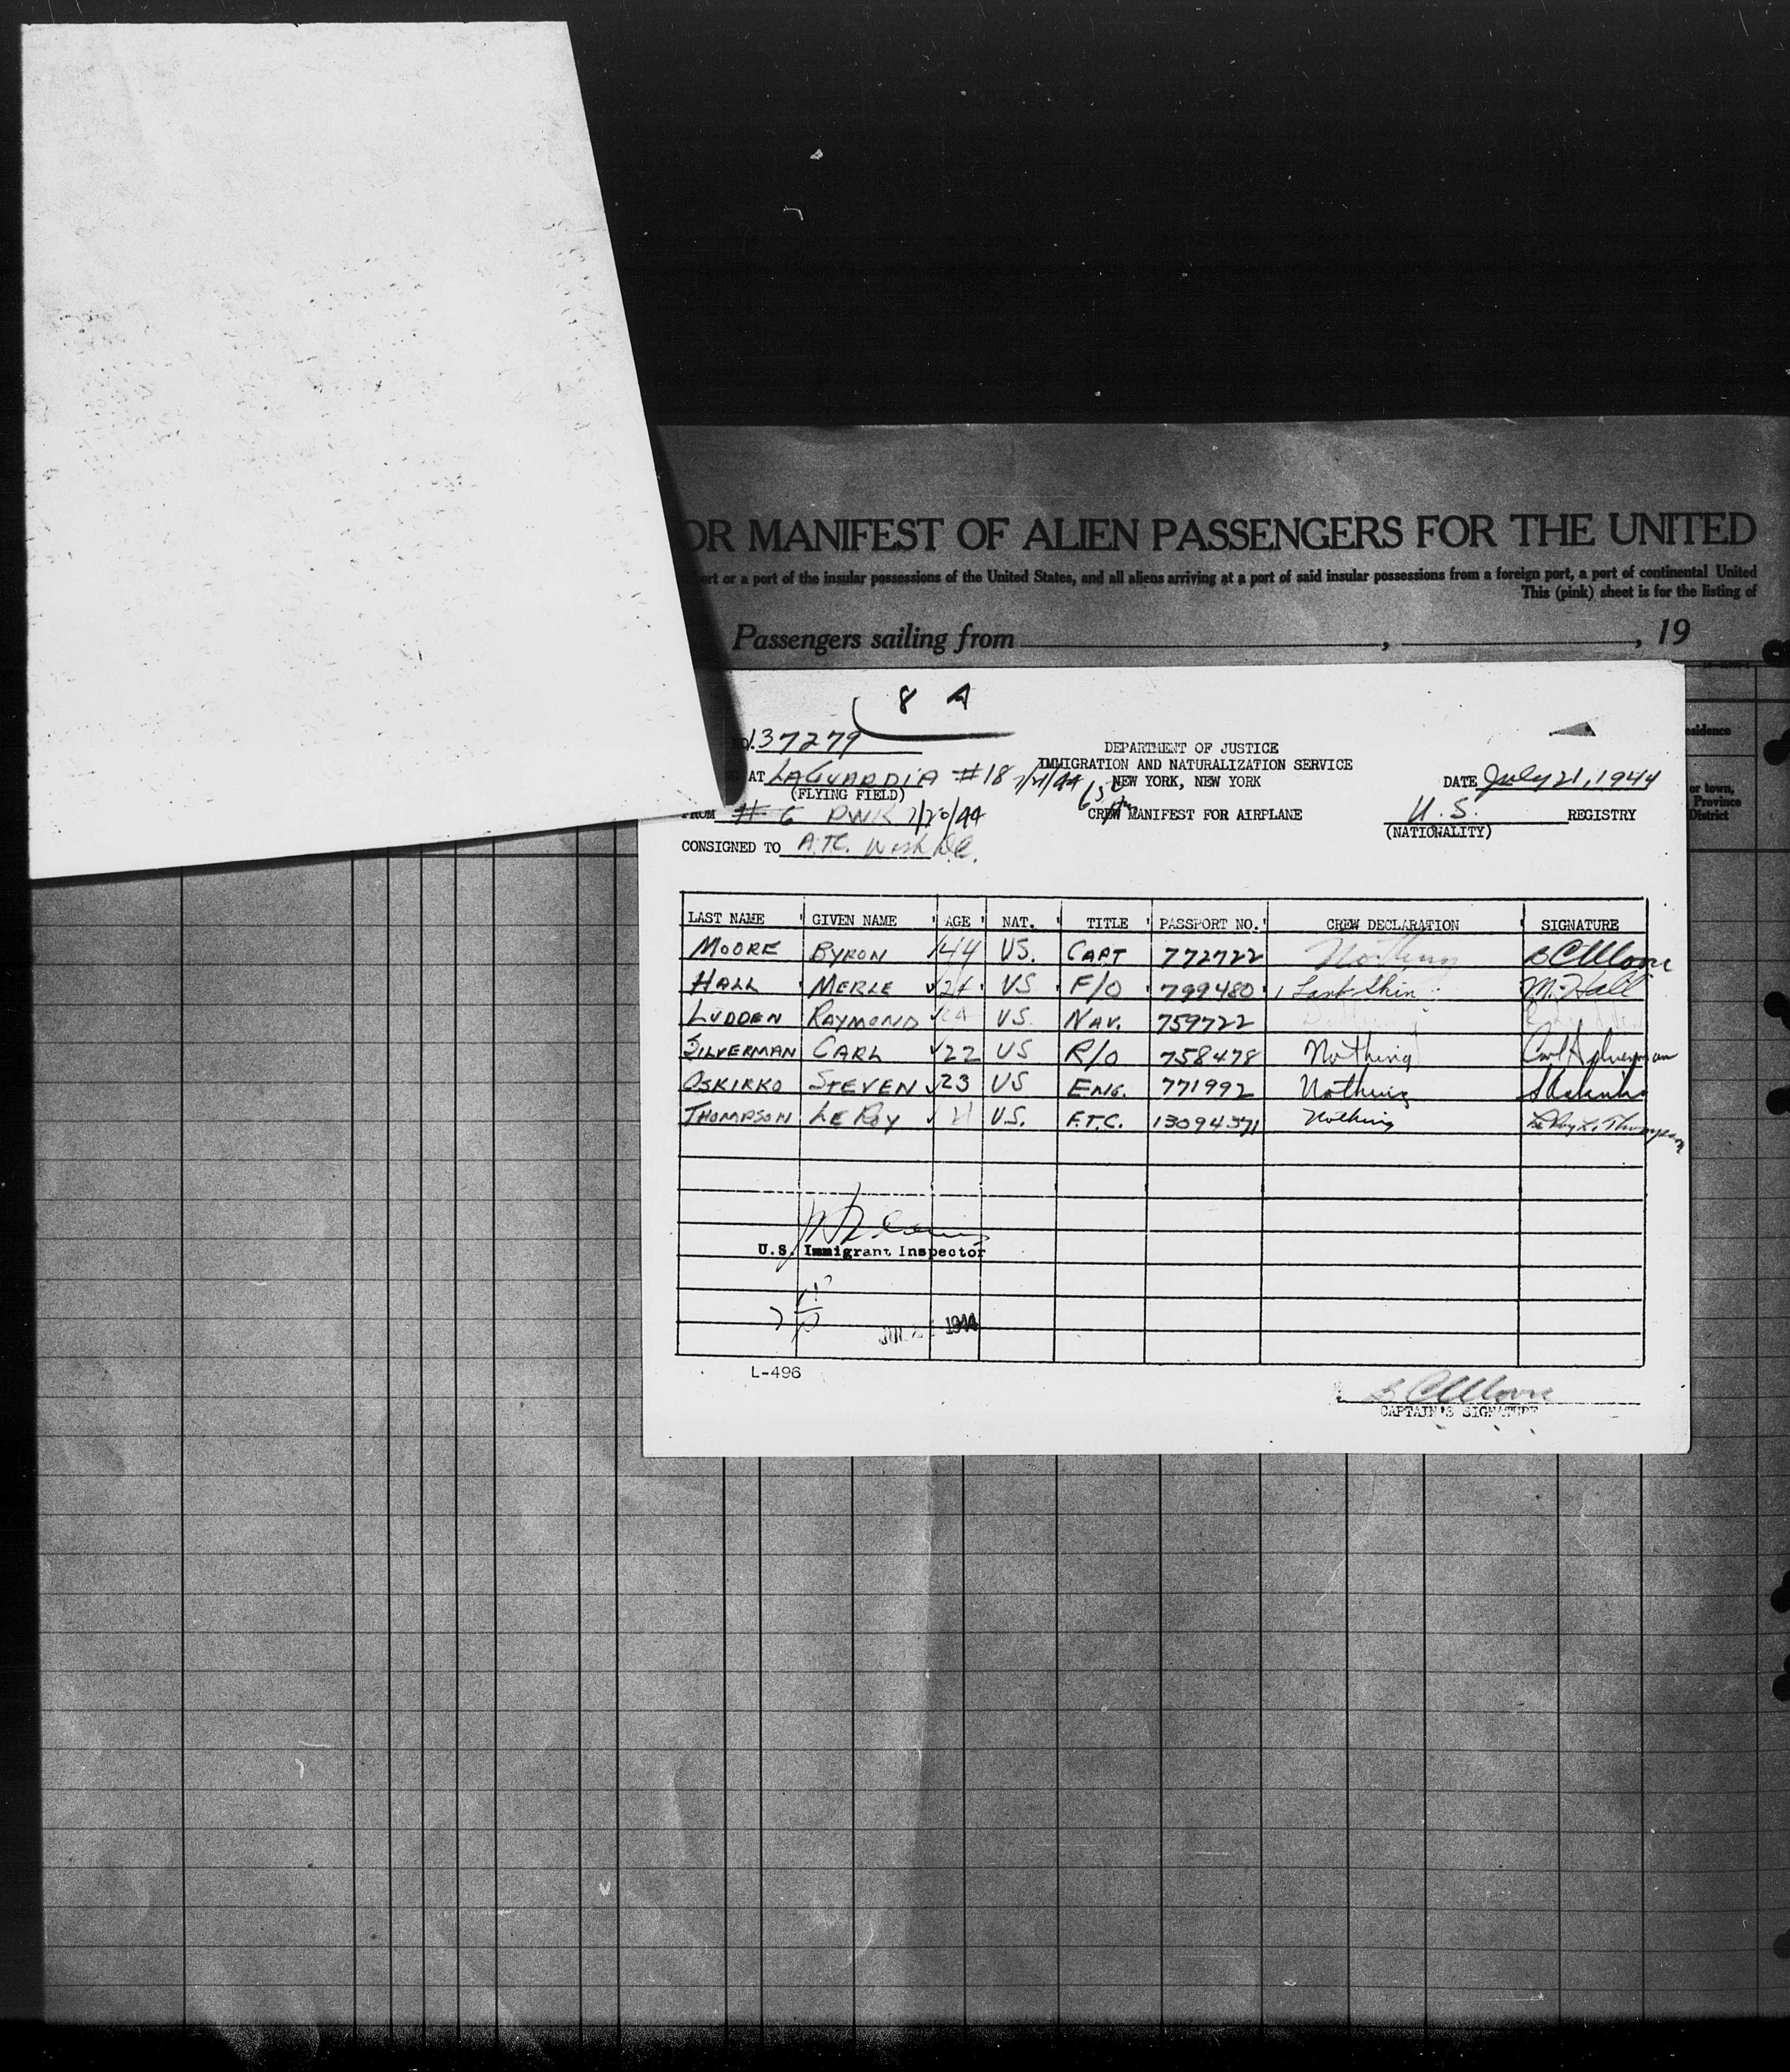 OR MANIFEST OF ALIEN PASSENGERS FOR THE UNITED
ort or a port of the insular possessions of the United States, and all aliens arriving at a port of said insular possessions from a foreign port, a port of continental United
This (pink) sheet is for the listing of
Passengers sailing from , , 19
8 A
NO. 37279
DEPARTMENT OF JUSTICE
IMMIGRATION AND NATURALIZATION SERVICE
AT LAGUARDIA #18 7/21/44 NEW YORK, NEW YORK DATE July 21, 1944
(FLYING FIELD)
FROM # 6 PWK 7/20/44 CREW MANIFEST FOR AIRPLANE U.S. REGISTRY
(NATIONALITY)
CONSIGNED TO A.T.C. Wash D.C.
LAST NAME GIVEN NAME AGE NAT. TITLE PASSPORT NO. CREW DECLARATION SIGNATURE
MOORE BYRON 44 US. CAPT 772722 Nothing B C Moore
HALL MERLE US F/O 799480 1 M. Hall
LUDDEN RAYMOND US. NAV. 759722
SILVERMAN CARL 22 US R/O 758478 Nothing Carl Silverman
OSKIRKO STEVEN 23 US ENG. 771992 Nothing
THOMPSON LE ROY 21 U.S. F.T.C. 13094371 Nothing LeRoy L. Thompson
U.S. Immigrant Inspector
JUL 1944
L-496
B C Moore
CAPTAIN'S SIGNATURE
esidence
or town,
Province
District